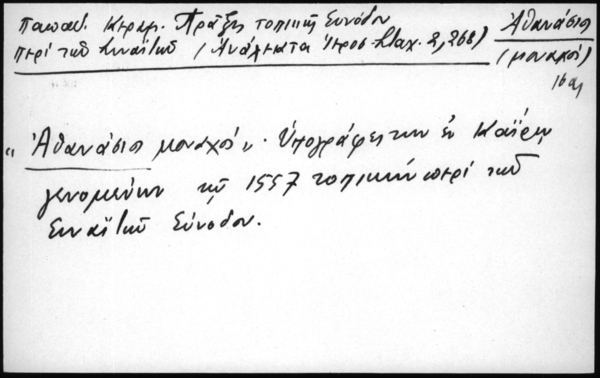 Παπαδ. Κεραμ. Πράξις τοπικῆς Συνόδου
περί τοῦ Σιναΐτου (Ἀνάλεκτα Ἱεροσ. Σταχ. 2, 268)
Ἀθανάσιος
(μοναχός)
16 αι
"Ἀθανάσιος μοναχός". Ὑπογράφει τὴν ἐν Καΐρῳ
γενομένην τῷ 1557 τοπικήν περί τοῦ
Σιναΐτου Σύνοδον.